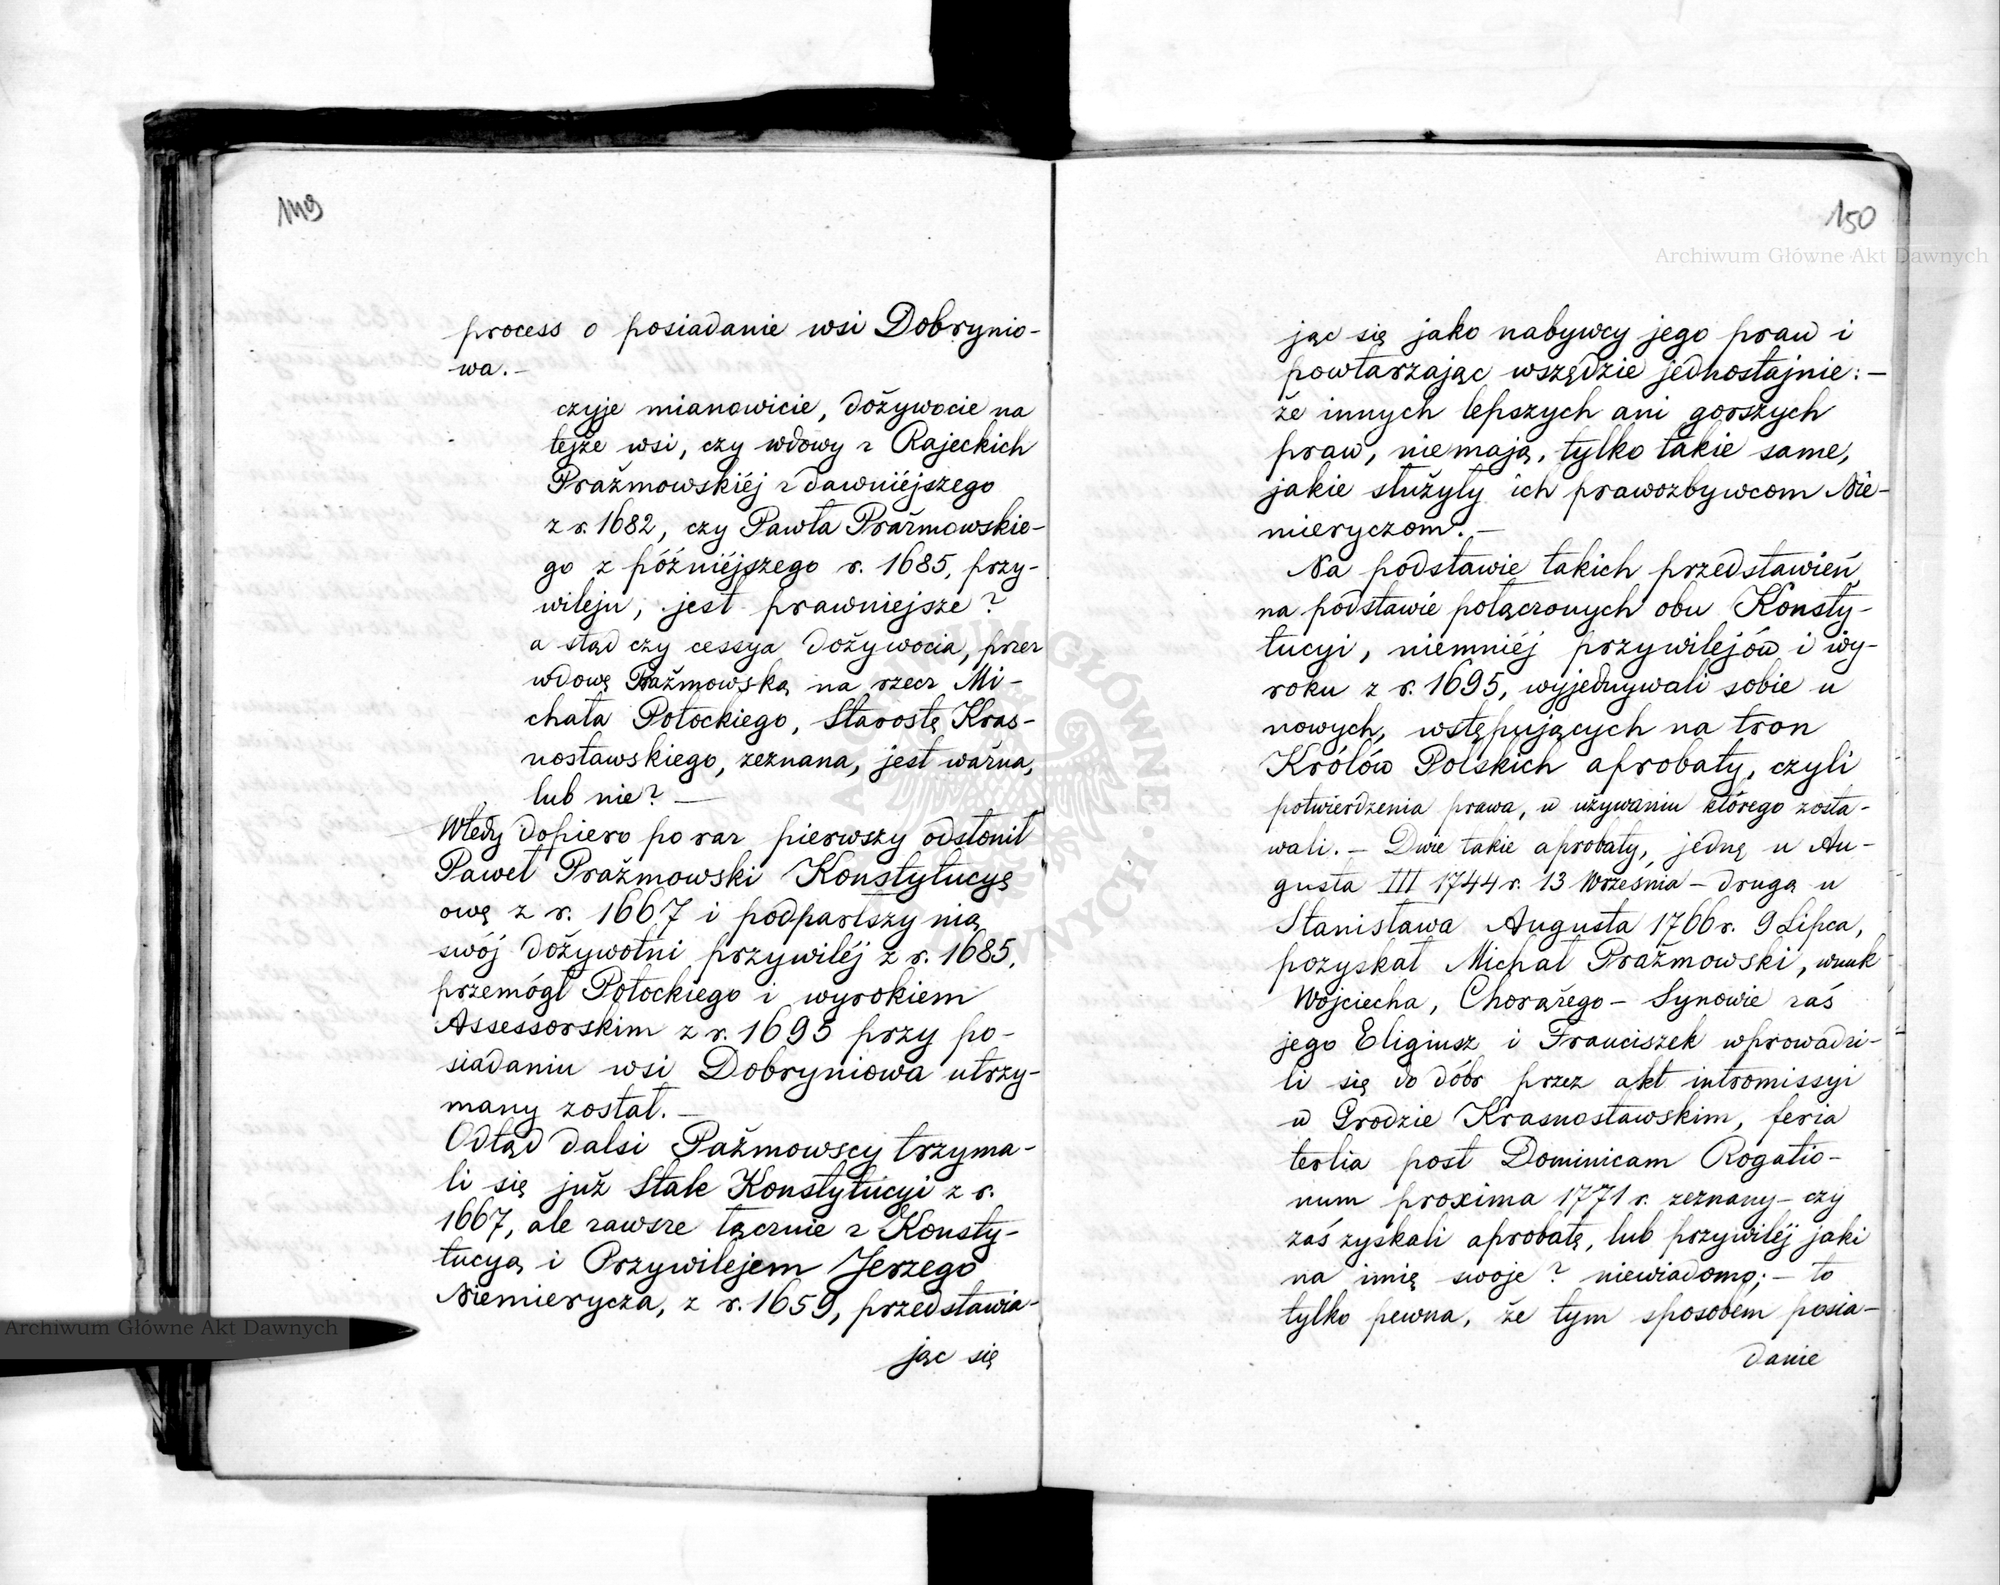 149
process o posiadanie wsi Dobrynio-
wa. –
czyje mianowicie, dożywocie na
tejże wsi, czy wdowy z Rajeckich
Prażmowskiéj z dawniéjszego
z r. 1682, czy Pawła Prażmowskie-
go z późniéjszego r. 1685, przy-
wileju, jest prawniejsze?
a stąd czy cessya dożywocia, przez
wdowę Prażmowską na rzecz Mi-
chała Potockiego, Starostę Kras-
nostawskiego, zeznana, jest ważna,
lub nie? —
Wtedy dopiero po raz pierwszy odsłonił
Paweł Prażmowski Konstytucyę
ową z r. 1667 i podparłszy nią
swój dożywotni przywiléj z r. 1685,
przemógł Potockiego i wyrokiem
Assessorskim z r. 1695 przy po-
siadaniu wsi Dobryniowa utrzy-
many został. —
Odtąd dalsi Pażmowscy trzyma-
li się już stale Konstytucyi z r.
1667, ale zawsze łącznie z Konsty-
tucyą i Przywilejem Jerzego
Niemierycza, z r. 1659, przedstawia-
jąc się
150
Archiwum Główne Akt Dawnych
jąc się jako nabywcy jego praw i
powtarzając wszędzie jednostajnie: –
że innych lepszych ani gorszych
praw, niemają, tylko takie same,
jakie służyły ich prawozbywcom Nie-
mieryczom. —
Na podstawie takich przedstawień,
na podstawie połączonych obu Konsty-
tucyi, niemniéj przywilejów i wy-
roku z r. 1695, wyjednywali sobie u
nowych, wstępujących na tron
Królów Polskich aprobaty, czyli
potwierdzenia prawa, w używaniu którego zosta-
wali. – Dwie takie aprobaty, jedną u Au-
gusta III 1744 r. 13 Września – drugą u
Stanisława Augusta 1766 r. 9 Lipca,
pozyskał Michał Prażmowski, wnuk
Wojciecha, Chorążego – Synowie zaś
jego Eligiusz i Franciszek wprowadzi-
li się do dóbr przez akt intromissyi
w Grodzie Krasnostawskim, feria
tertia post Dominicam Rogatio-
num proxima 1771 r. zeznany – czy
zaś zyskali aprobatę, lub przywiléj jaki
na imię swoje? niewiadomo; – to
tylko pewna, że tym sposobem posia-
danie
Archiwum Główne Akt Dawnych